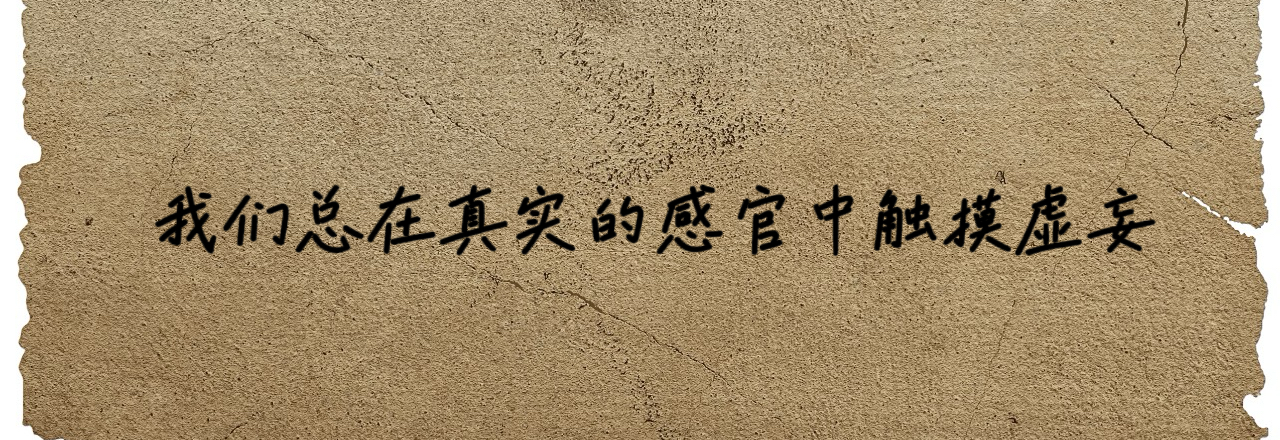 我们总在真实的感官中触摸虚妄